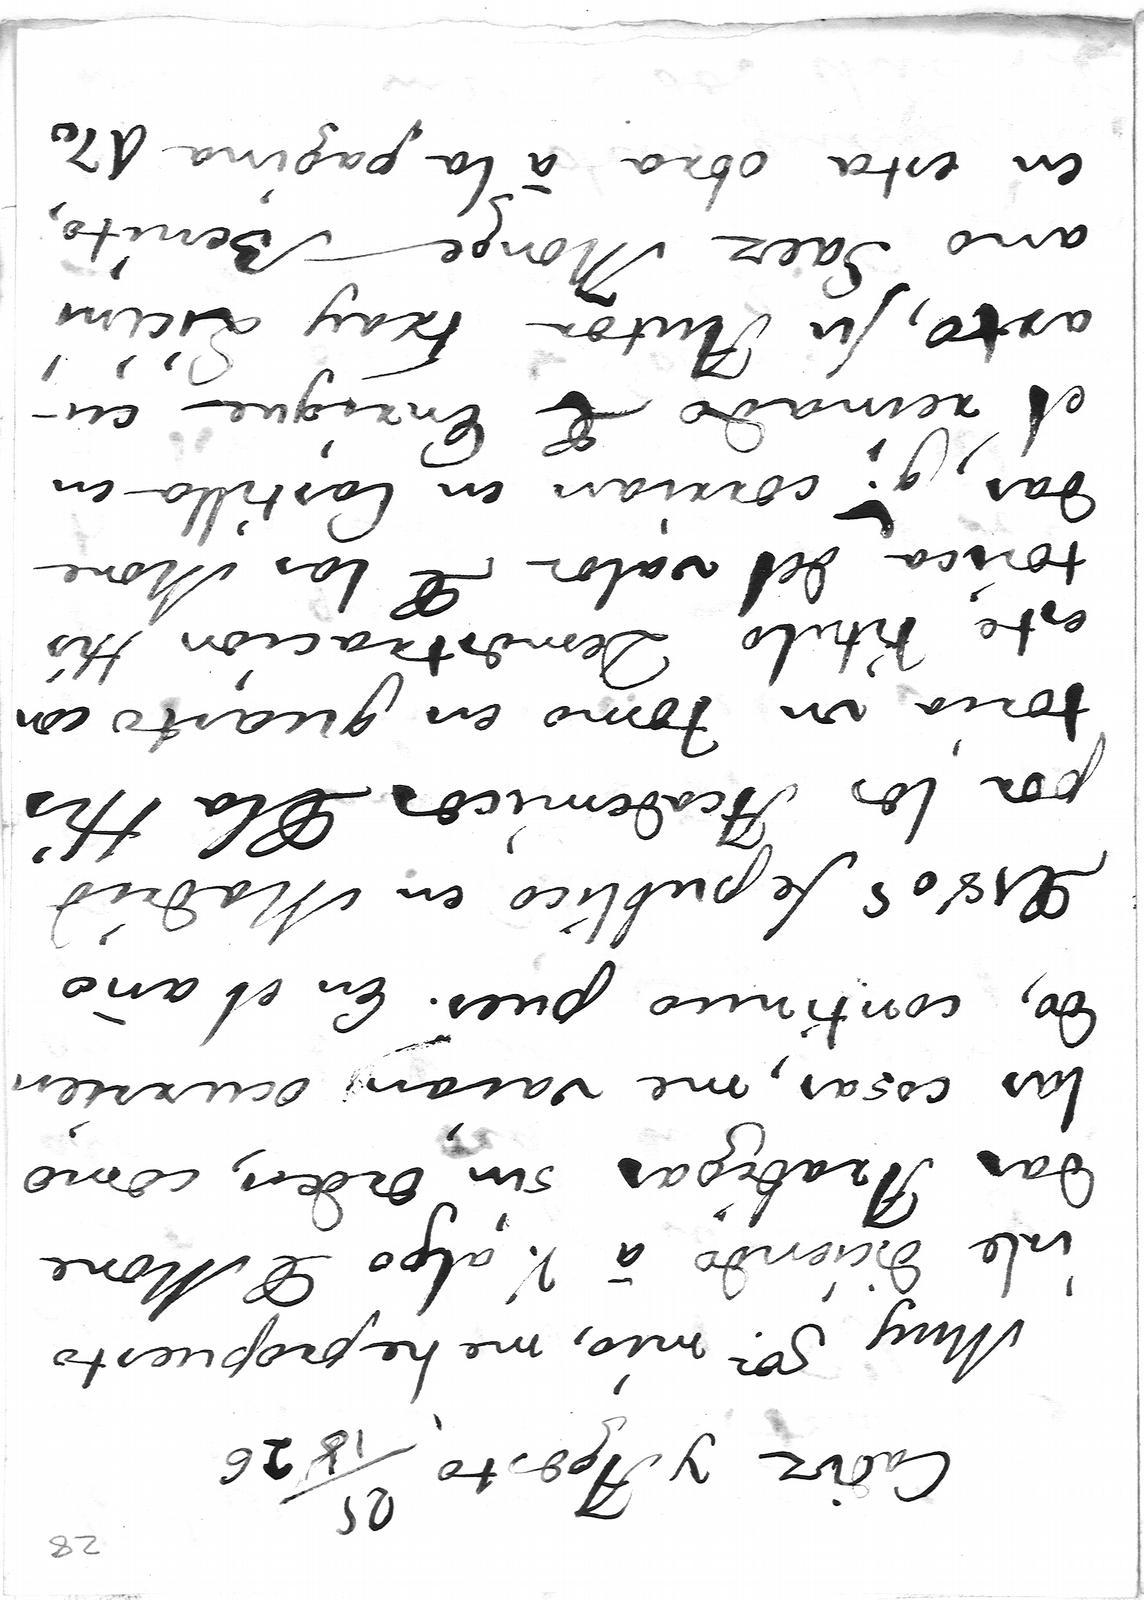 28
Cadiz y Agosto, 25/1826
Muy Sor. mio, me he propuesto
irle diciendo à V. algo de Mone
das Arabigas sin orden, como
las cosas, me vaian ocurrien
do, continuo pues. En el año
de 1805 se publico en Madrid
por los Academicos de la His
toria, un tomo en quarto con
este, titulo Demostracion His
torica, del valor de las Mone
das, q.e corrian en Castilla en
el reinado de Enrique cu-
arto, su Autor Fray Licini
ano Saez Monge Benito,
en esta obra à la pagina 17